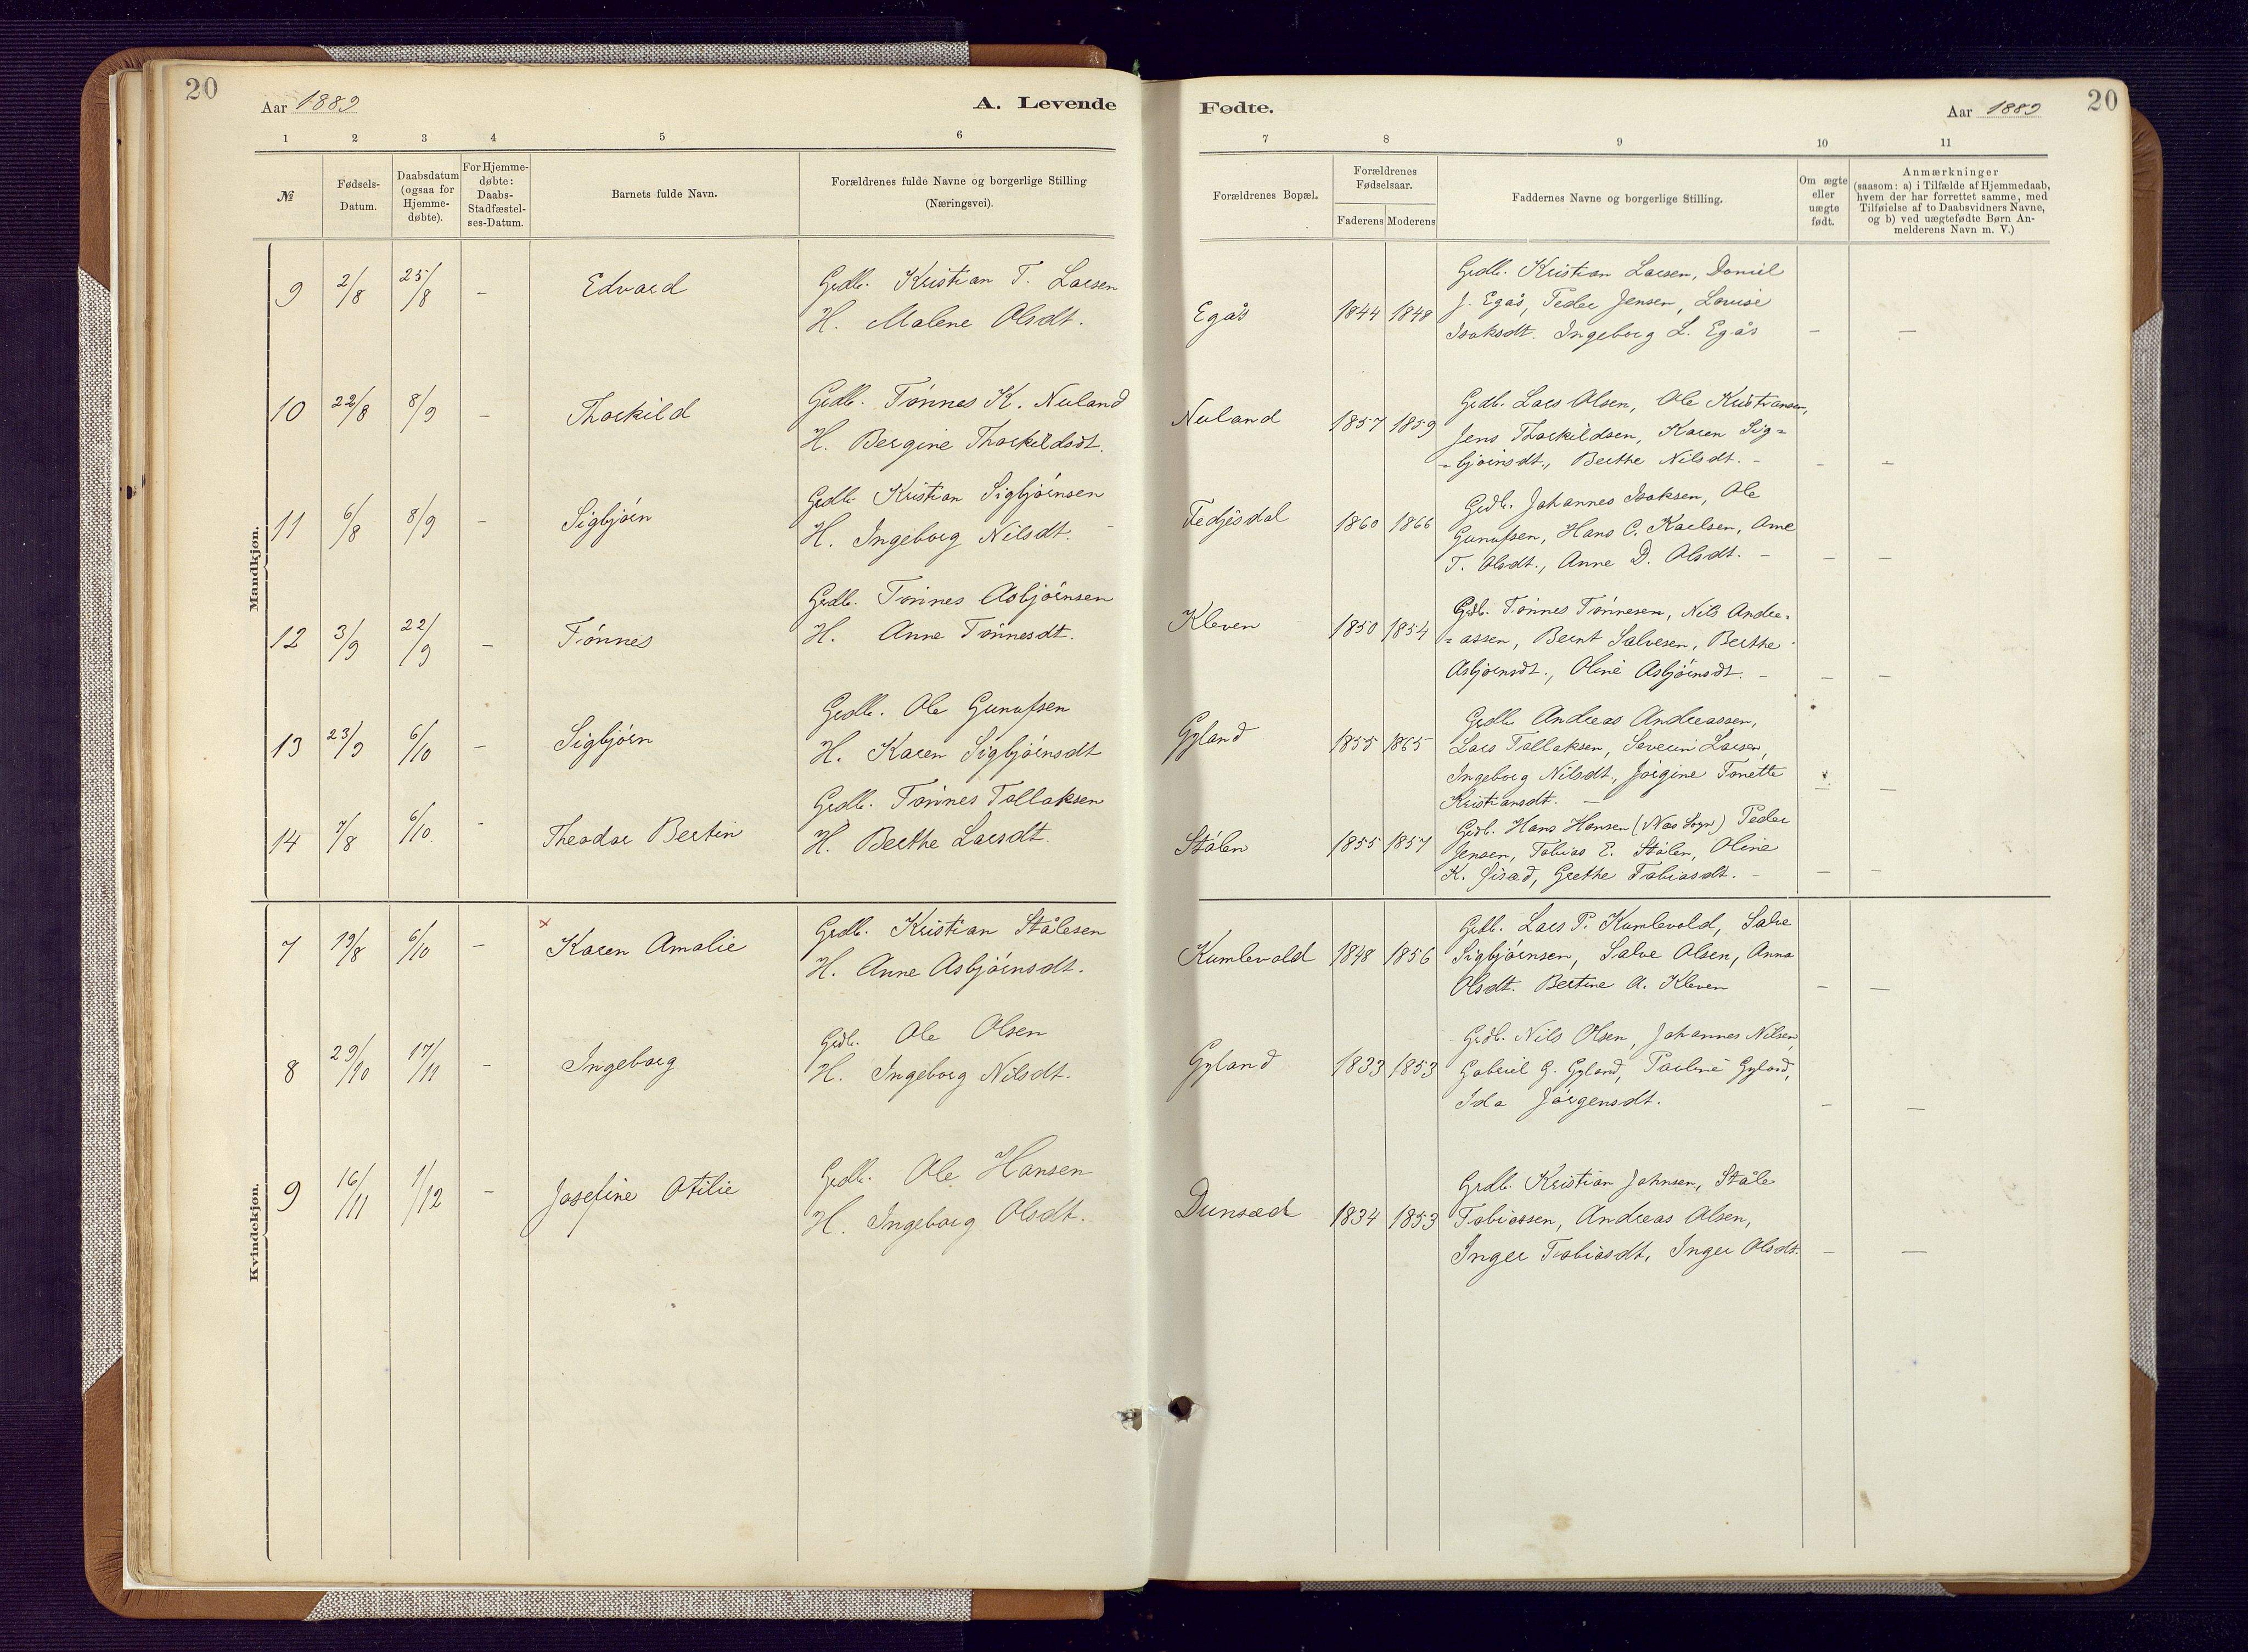 20
Aar 1889
A. Levende
1 2 3 4 5 6
№
Fødsels-
Datum.
Daabsdatum
(ogsaa for
Hjemme-
døbte).
For Hjemme-
døbte:
Daabs-
Stadfæstel-
ses-Datum.
Barnets fulde Navn.
Forældrenes fulde Navne og borgerlige Stilling
(Næringsvei).
Mandkjøn.
9 2/8 25/8 - Edvard
Grdb. Kristian T. Larsen
H. Malene Olsdt.
10 22/8 8/9 - Thorkild
Grdb. Tönnes K. Nuland
H. Bergine Thorkildsdt.
11 6/8 8/9 - Sigbjörn
Grdb. Kristian Sigbjörnsen
H. Ingeborg Nilsdt.
12 3/9 22/9 - Tönnes
Grdb. Tönnes Asbjörnsen
H. Anne Tönnesdt.
13 23/9 6/10 - Sigbjörn
Grdb. Ole Gunufsen
H. Karen Sigbjörnsdt
14 7/8 6/10 - Theodor Bertin
Grdb. Tönnes Tollaksen
H. Berthe Larsdt.
Kvindekjøn.
7 19/8 6/10 - × Karen Amalie
Grdb. Kristian Stålesen
H. Anne Asbjörnsdt.
8 29/10 17/11 - Ingeborg
Grdb. Ole Olsen
H. Ingeborg Nilsdt.
9 16/11 1/12 - Josefine Otilie
Grdb. Ole Hansen
H. Ingeborg Olsdt.
Fødte.
Aar 1889
20
7 8 9 10 11
Forældrenes Bopæl.
Forældrenes
Fødselsaar.
Faderens Moderens
Faddernes Navne og borgerlige Stilling.
Om ægte
eller
uægte
født.
Anmærkninger
(saasom: a) i Tilfælde af Hjemmedaab,
hvem der har forrettet samme, med
Tilføielse af to Daabsvidners Navne,
og b) ved uægtefødte Børn An-
melderens Navn m. V.)
Egås 1844 1848
Grdb. Kristian Larsen, Daniel
J. Egås, Peder Jensen, Louise
Isaksdt. Ingeborg L. Egås - -
Nuland 1857 1859
Grdb. Lars Olsen, Ole Kristiansen,
Jens Thorkildsen, Karen Sig=
=björnsdt., Berthe Nilsdt. - - -
Fedjesdal 1860 1866
Grdb. Johannes Isaksen, Ole
Gunufsen, Hans C. Karlsen, Anne
T. Olsdt., Anne D. Olsdt. - - -
Kleven 1850 1854
Grdb. Tönnes Tönnesen, Nils Andre=
=assen, Bernt Salvesen, Berthe
Asbjörnsdt., Oline Asbjörnsdt. - - -
Gyland 1855 1865
Grdb. Andreas Andreassen,
Lars Tollaksen, Severin Larsen,
Ingeborg Nilsdt., Jörgine Tonette
Kristiansdt. - - -
Stölen 1855 1857
Grdb. Hans Hansen (Næs Sogn) Peder
Jensen, Tobias E. Stålen, Oline
K. Sirød, Grethe Tobiasdt. - - -
Kumlevold 1848 1856
Grdb. Lars P. Kumlevold, Salve
Sigbjörnsen, Salve Olsen, Anna
Olsdt. Bertine A. Kleven - -
Gyland 1833 1853
Grdb. Nils Olsen, Johannes Nilsen,
Gabriel G. Gyland, Pauline Gyland,
Ida Jörgensdt. - -
Dunsæd 1834 1853
Grdb. Kristian Johnsen, Ståle
Tobiassen, Andreas Olsen,
Inger Tobiasdt, Inger Olsdt. - -